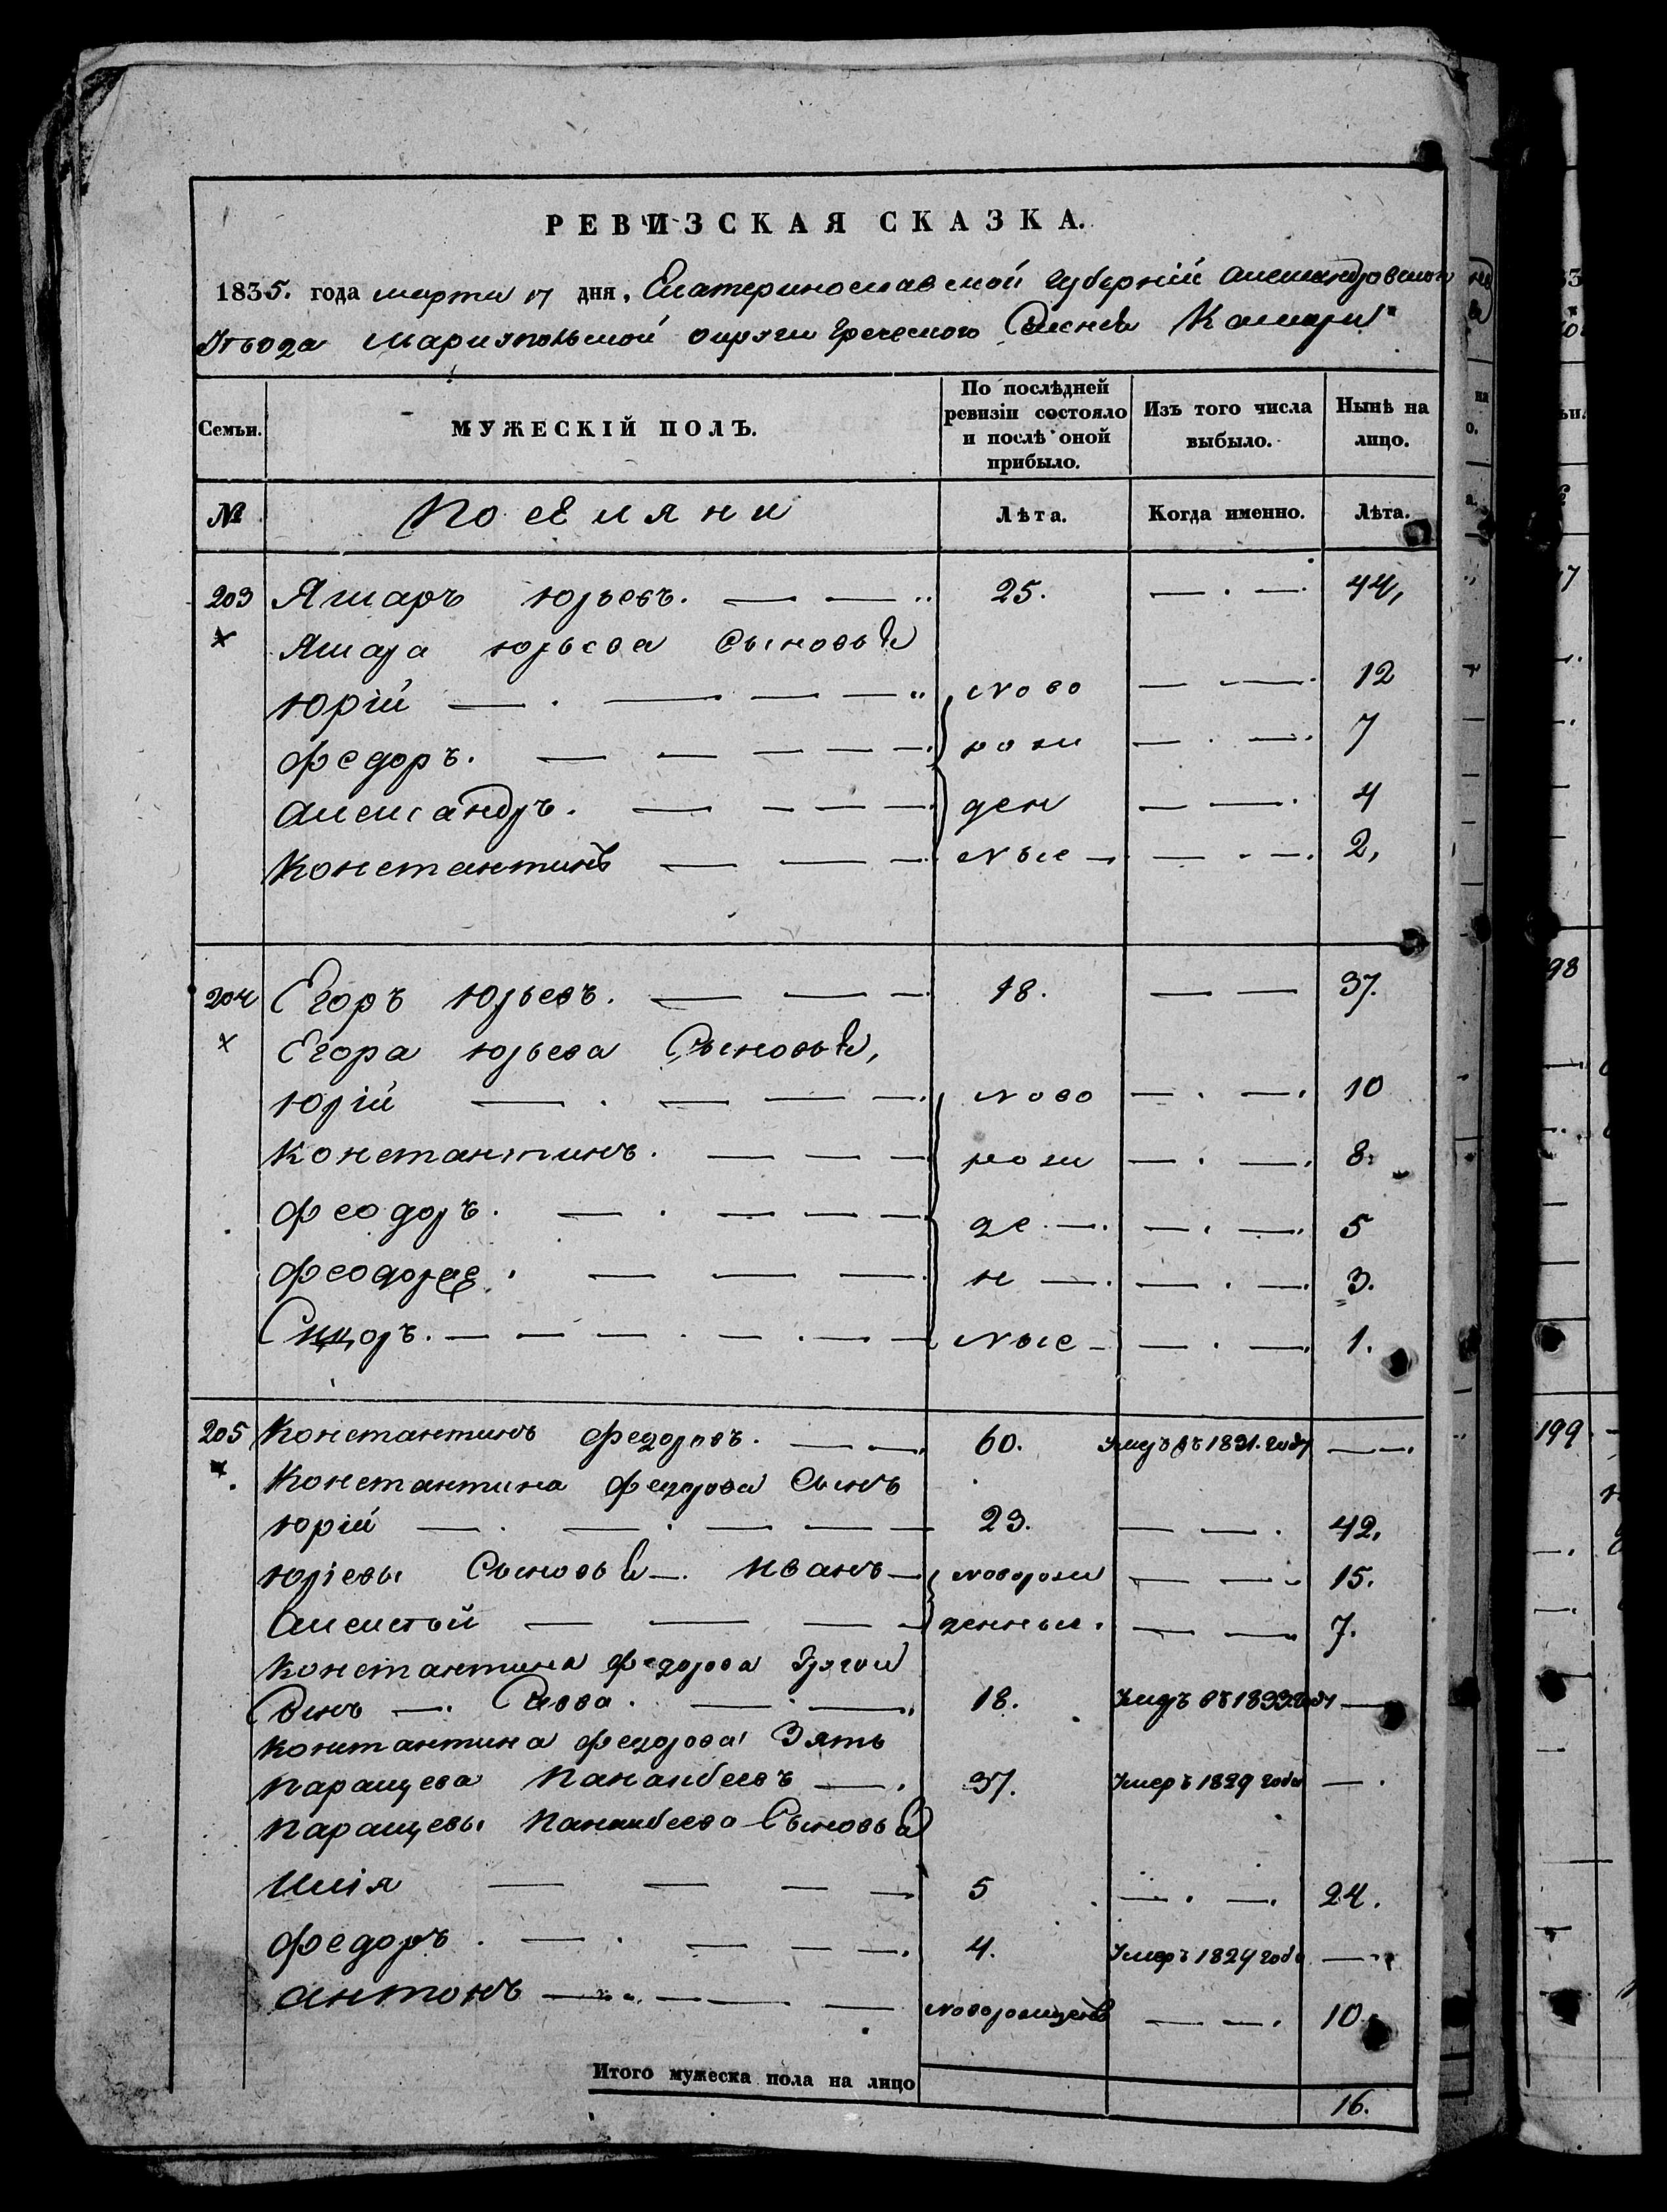 РЕВИЗСКАЯ СКАЗКА.
1835. года марта 17 дня, Екатеринославской Губерніи Александровскаго
Уѣзда Маріупольской округи Греческого Селенія
Семьи. МУЖЕСКІЙ ПОЛЪ. По послѣдней ревизіи состояло и послѣ оной прибыло. Изъ того числа выбыло. Нынѣ на лицо.
№ Поселяни Лѣта. Когда именно. Лѣта.
203 Яшаръ Юрьевъ. 25. 44,
Яшара Юрьева Сыновья
Юрій ново 12
Федоръ. рож 7
Александръ. ден 4
Константинъ ные 2,
204 Егоръ Юрьевъ. 18. 37.
Егора Юрьева Сыновья,
Юрій ново 10
Константинъ. рож 8.
Феодоръ. де 5
н 3.
ные 1.
205 Константинъ Федоровъ. 60. Умеръ въ 1831. году
Константина Федорова Сынъ
Юрій 23. 42.
Юріевы Сыновья Иванъ новорож 15.
Алексѣй денныя. 7.
Константина Федорова Другой
Сынъ Савва. 18. Умеръ въ 1833 году
Константина Федорова Зять
37. Умеръ 1829 года
Сыновья
Илія 5 24.
Федоръ. 4. Умеръ 1824 года
Антонъ новорожденъ 10.
Итого мужеска пола на лицо 16.
198
199